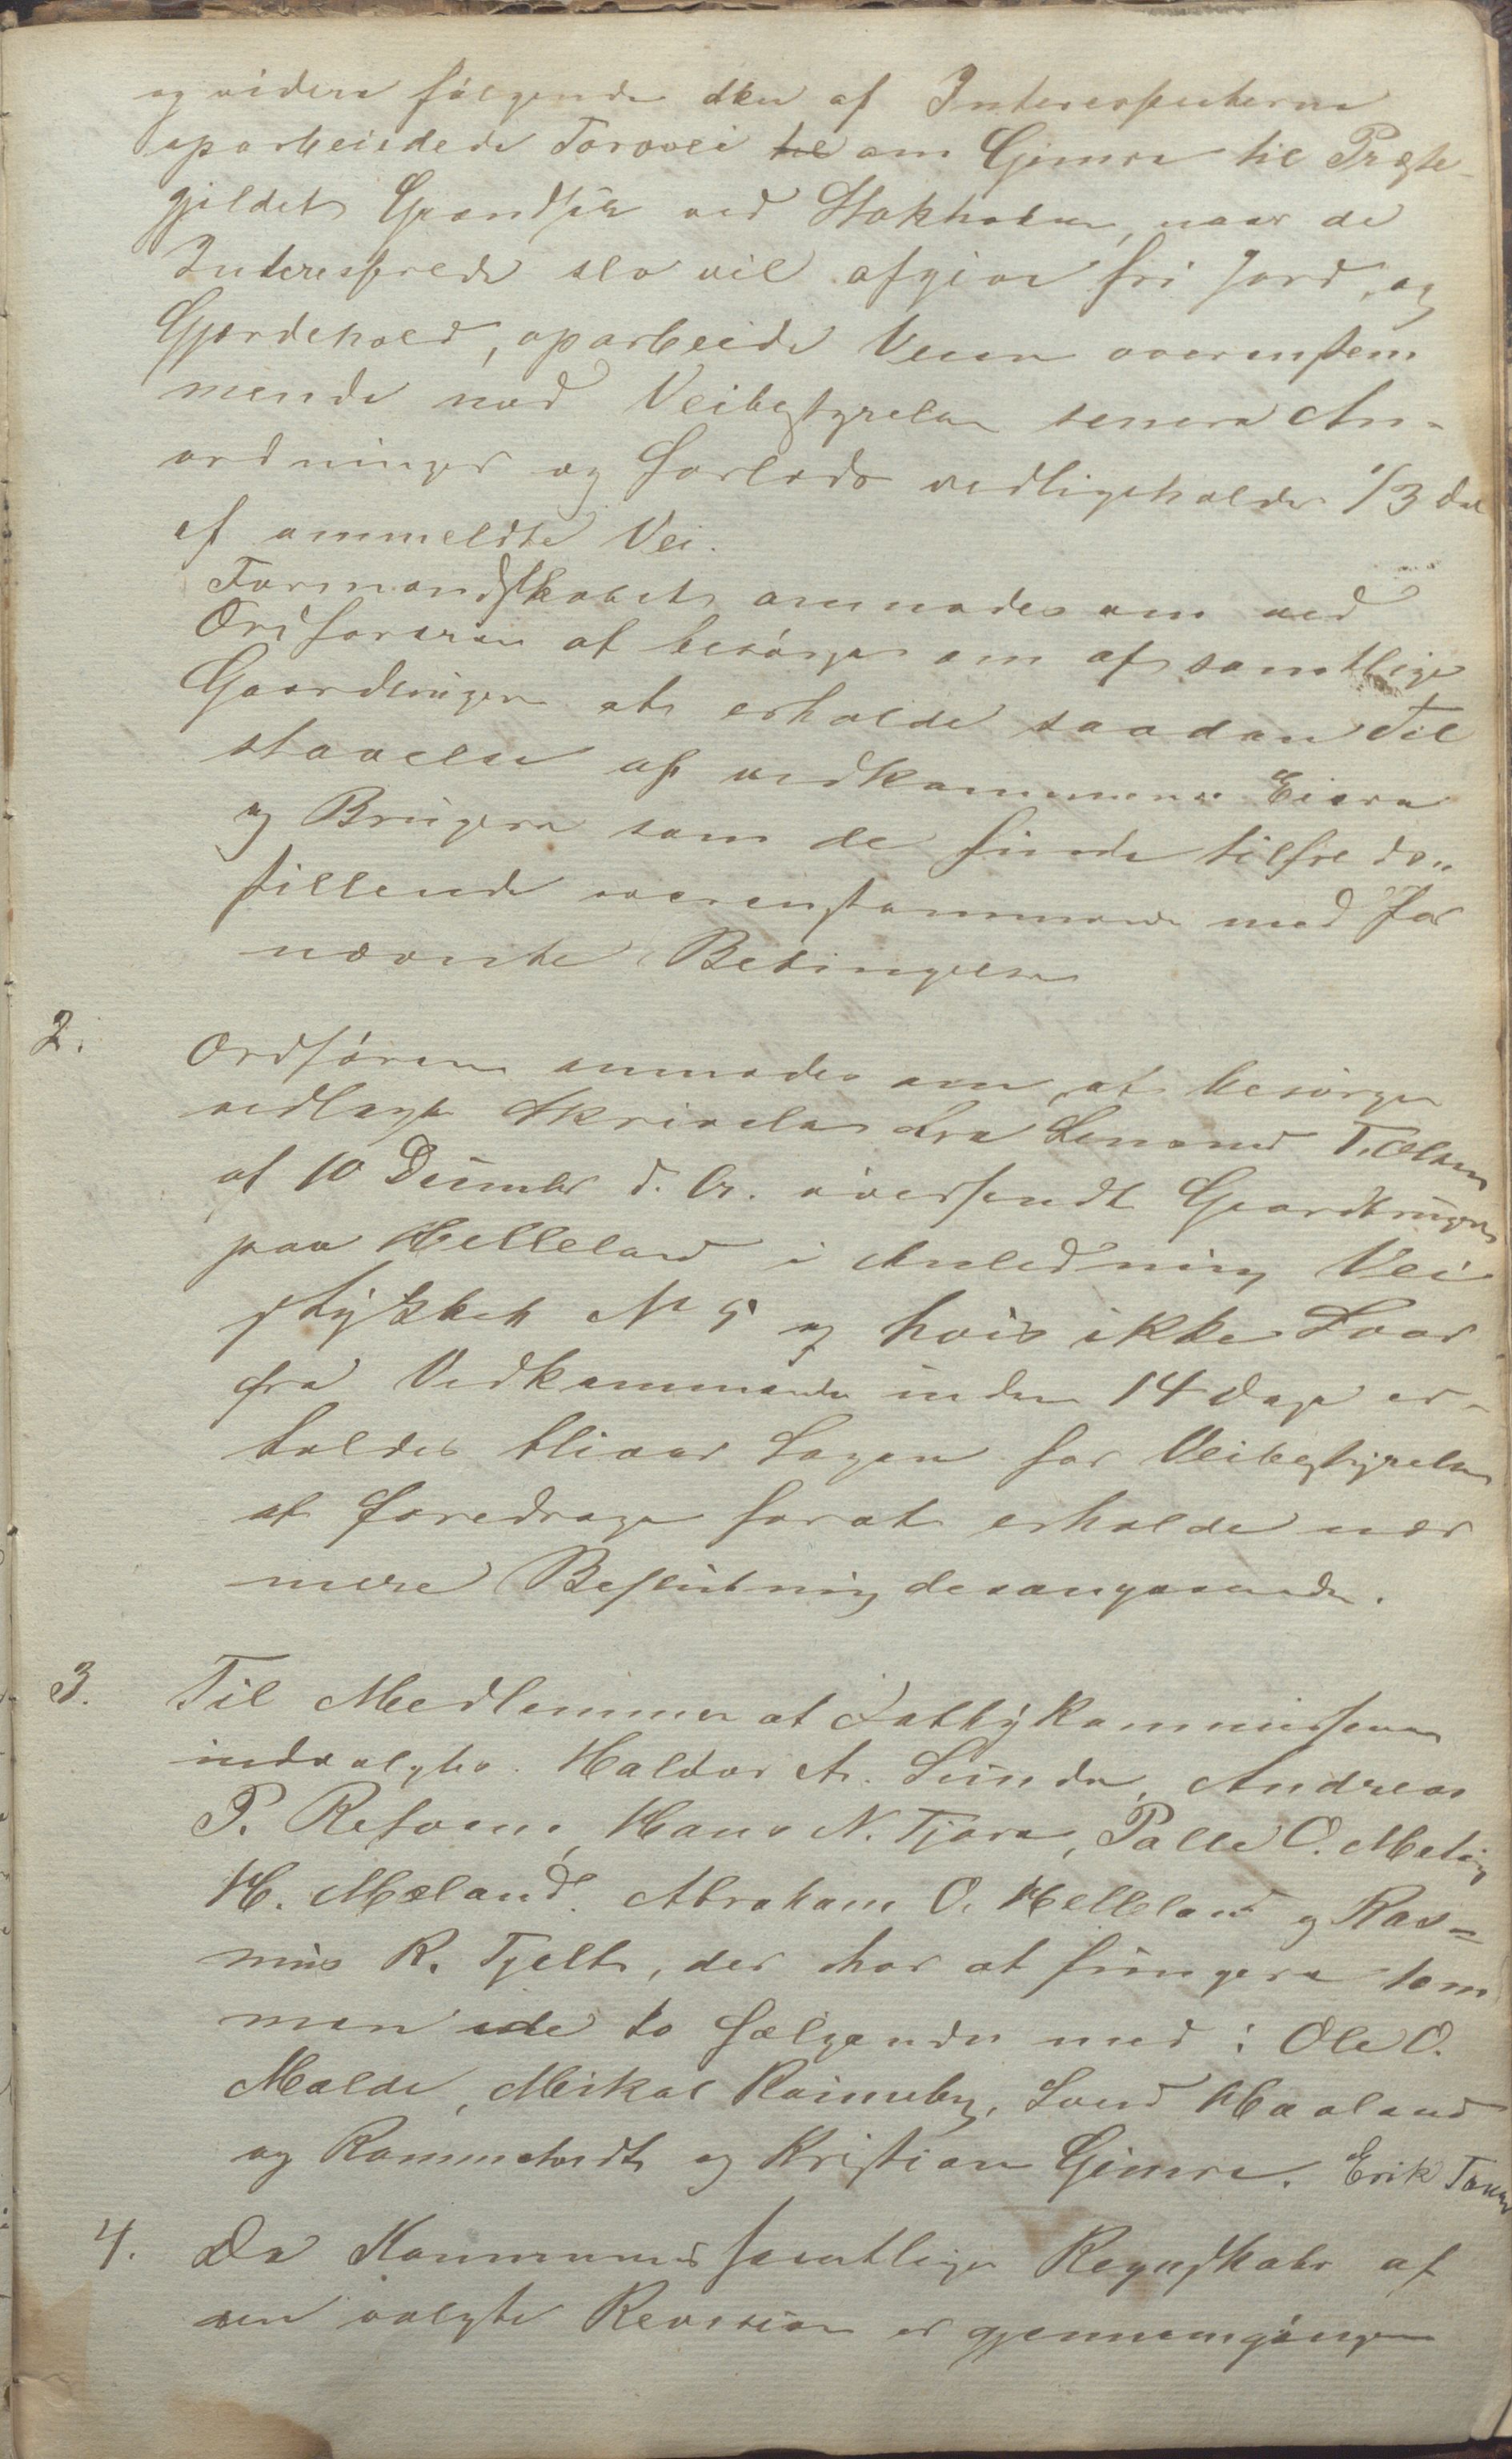 og videre følgende den af Interessenterne
oparbeidede Torvvei til om Gimre til Præste-
gjeldets Grændser ved Stokholen, naar de
Interesserede selv vil afgive fri Jord, og
Gjærdehold, oparbeide Veien overenstem
mende med Veibestyrelsens senere An-
ordninger og forlods vedligeholder 1/3 del
af ommeldte Vei.
Formandskabet anmodes om ved
Ordføreren at besørge om af samtlige
Gaardbruger at erholde saadan Til
staaelse af vedkommende Eiere
og Brugere som de finde tilfreds„
stillende overenstemmende med for
nævnte Betingelser
2. Ordføreren anmodes om at besørge
vedlagte Skrivelse fra Lensmand T. Olsen
af 10 Decimber d. A. oversendt Gaardbruger
paa Helleland i Anledning Vei
stykket N 5 og hvis ikke Svar
fra Vedkommende inden 14 Dage er-
holdes bliver Sagen for Veibestyrelsen
at foredrage forat erholde nær
mere Beslutning desangaaende.
3. Til Medlemmer af Fattigkommissionen
indvalgtes. Haldor A. Sunde, Andreas
P. Refsnes, Hans N. Tjora, Palle O. Meling
H. Mæland. Abraham O. Helleland og Ras=
mus R. Tjelta, der har at fungere som
man ide to følgende med: Ole O.
Malde, Mikal Raimeby, Svend Haaland
og Rommetvedt og Kristian Gimre. Erik Tanan
4. Da Kommunens samtlige Regnskaber af
den valgte Revision er gjennemgaaugen